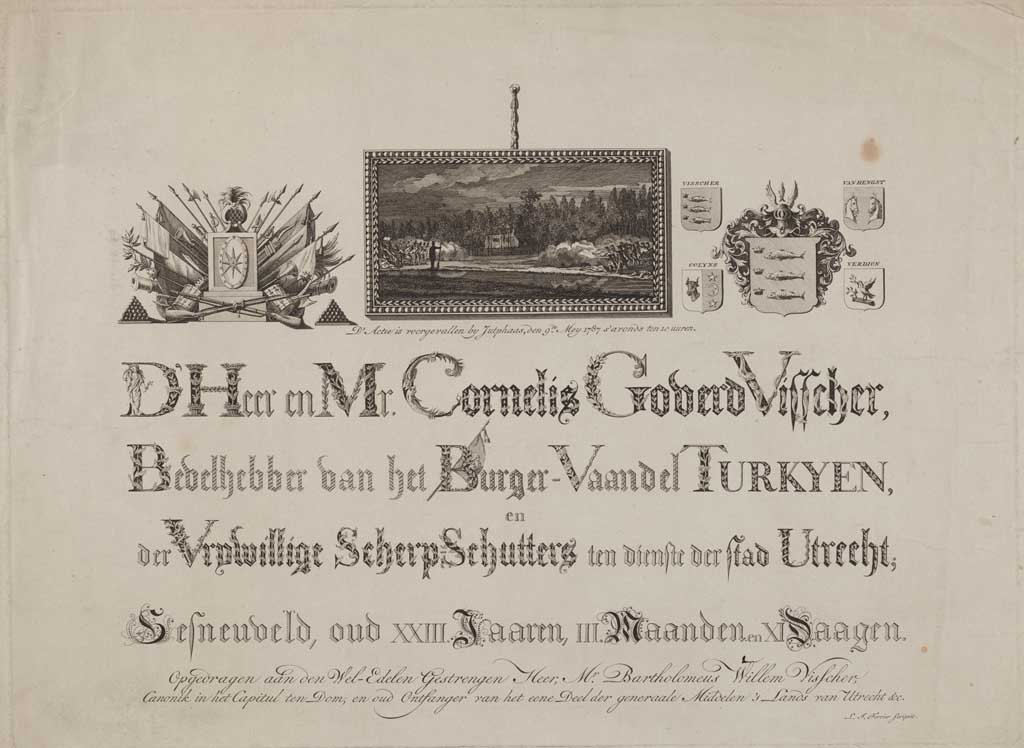 VISSCHER
VAN HENGST
COLYNS
VERDION
D'Actie is voorgevallen by Jutphaas, den 9de. Mey 1787 s'avonds ten 10 uuren.
D'Heer en Mr. Cornelis Goverd Visscher,
Bevelhebber van het Burger-Vaandel TURKYEN,
en
der Vrywillige ScherpSchutters ten dienste der stad Utrecht;
Gesneuveld, oud XXIII. Jaaren, III. Maanden en XI Daagen.
Opgedragen aan den Wel-Edelen Gestrengen Heer, Mr. Bartholomeus Willem Visscher,
Canonik in het Capittul ten Dom, en oud Ontfanger van het eene Deel der generaale Middelen 's Lands van Utrecht &c.
sculpsit.